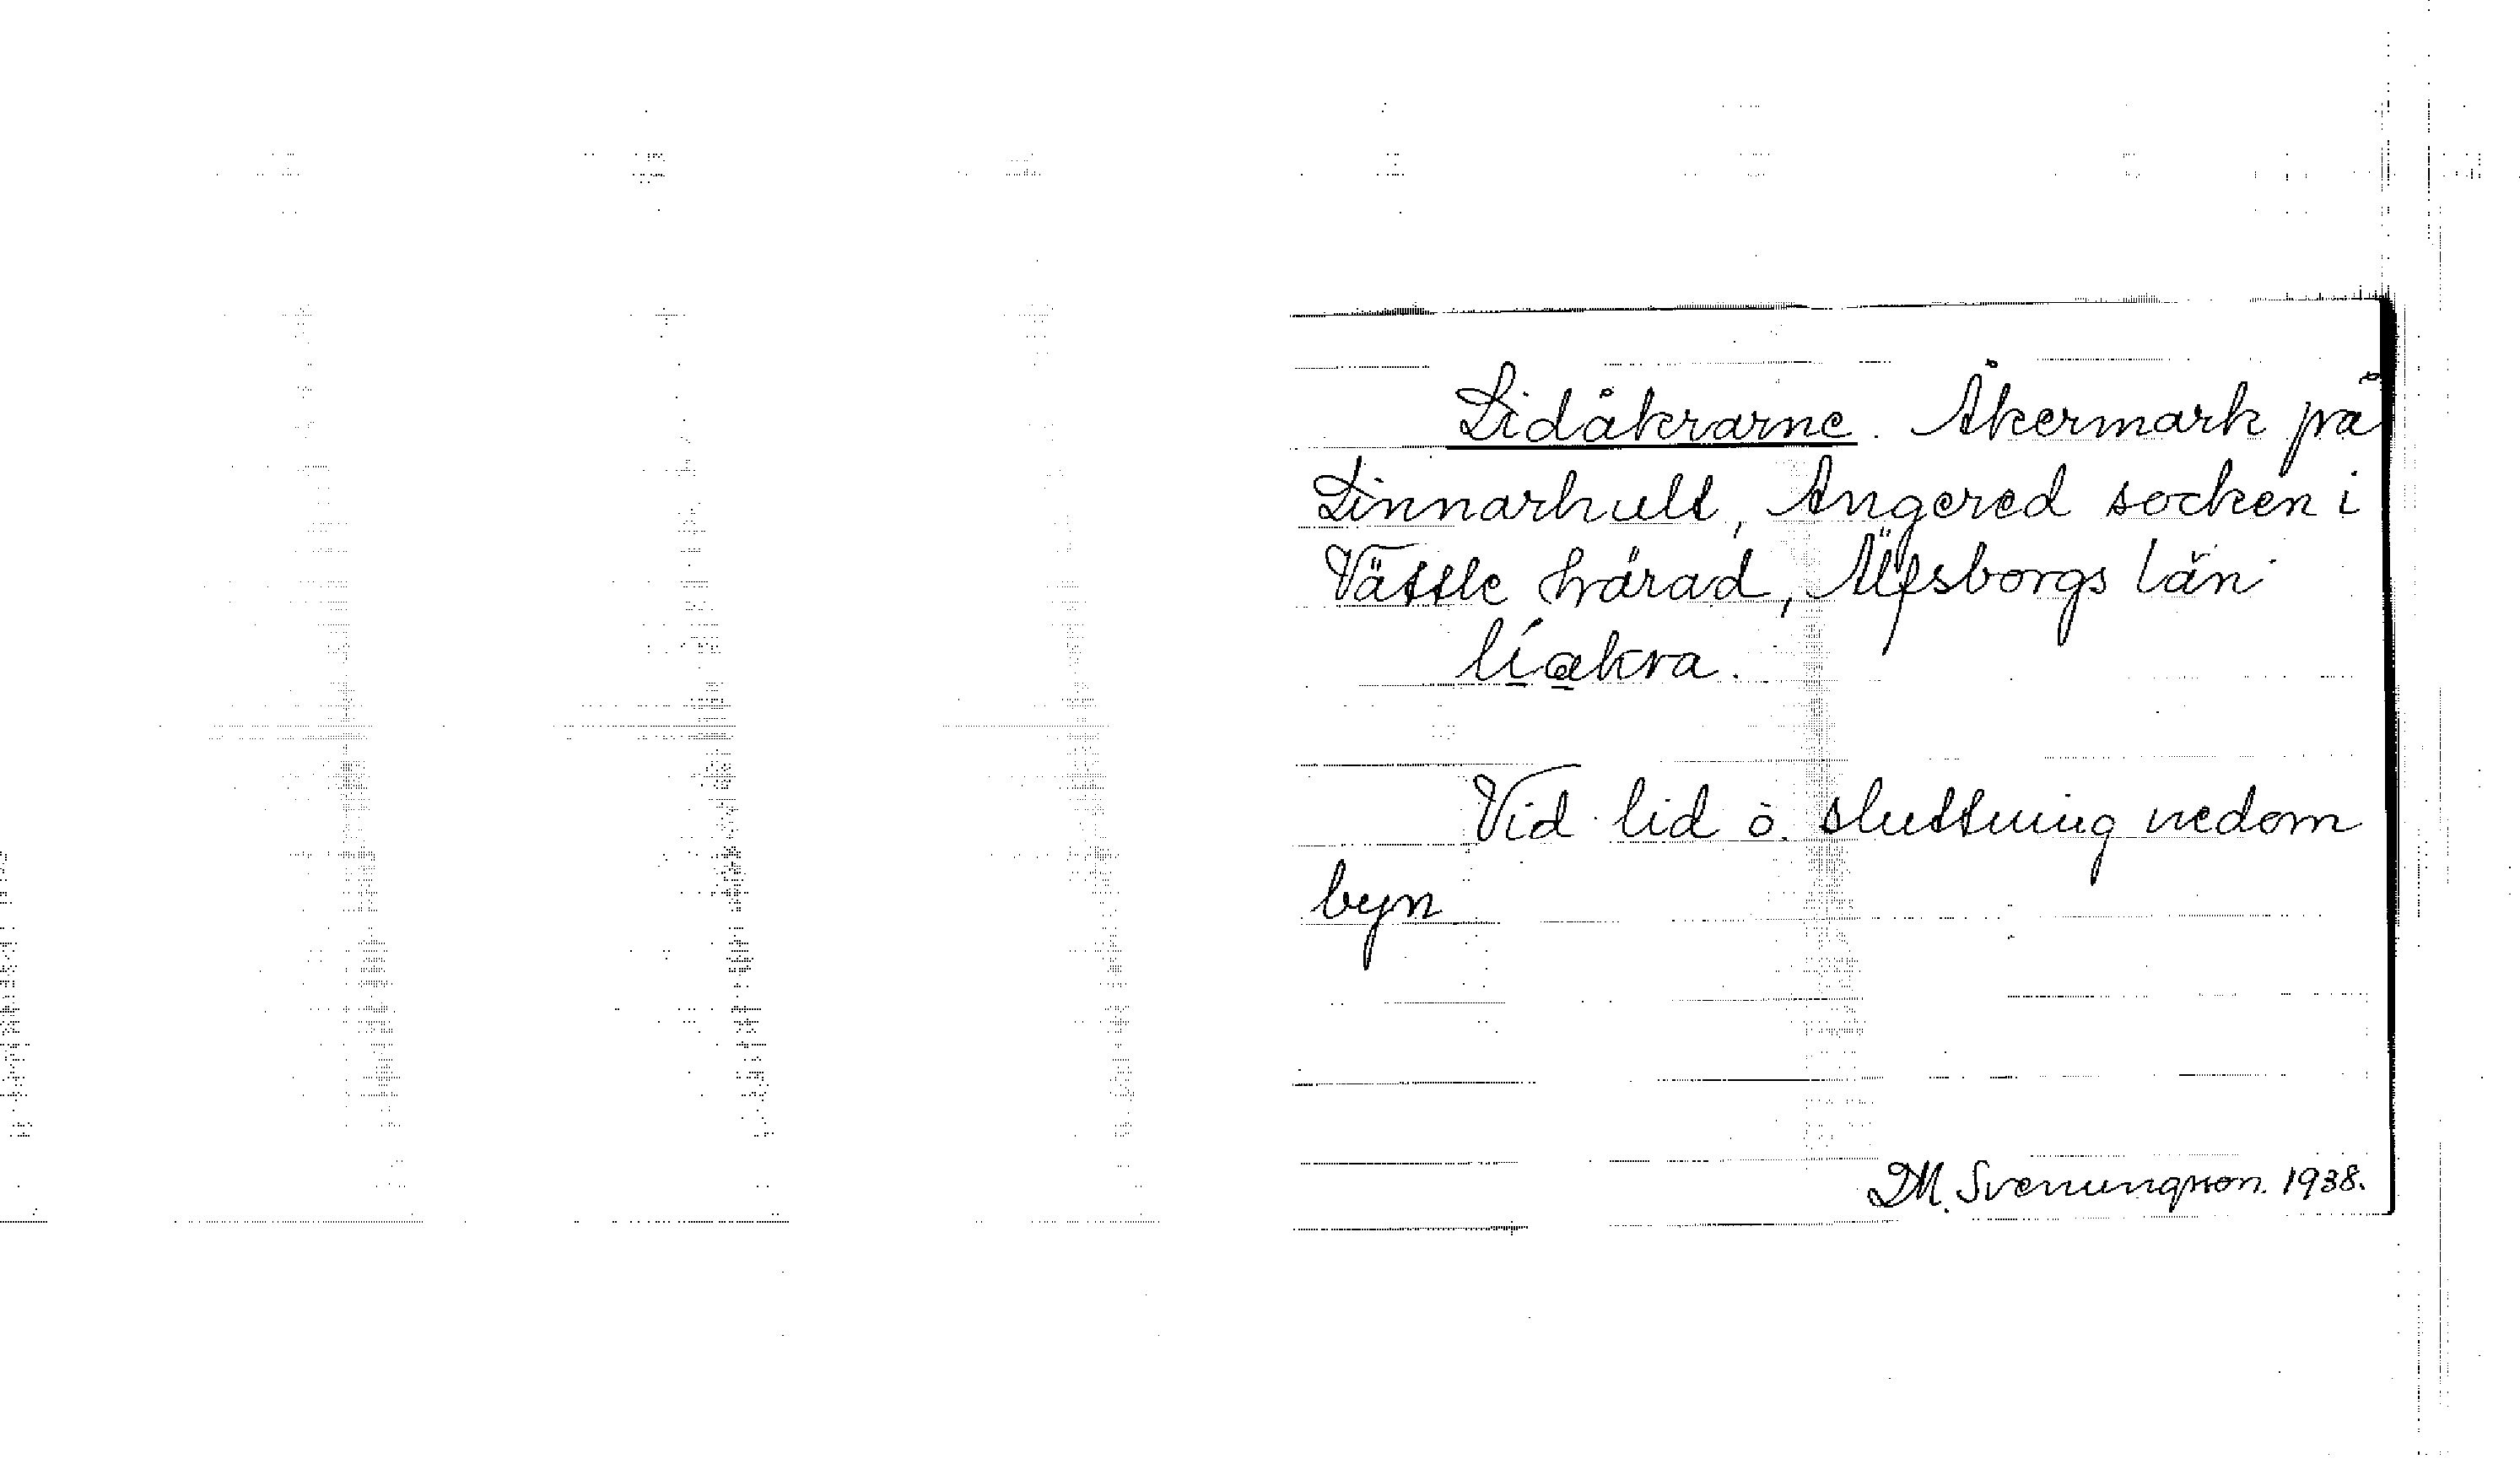 Lidåkrarne. Åkermark på
Linnarhult, Angered socken i
Vättle härad, Älfsborgs län
líakra.
Vid lid ò. sluttning nedom
byn
DM. Svenungsson. 1938.